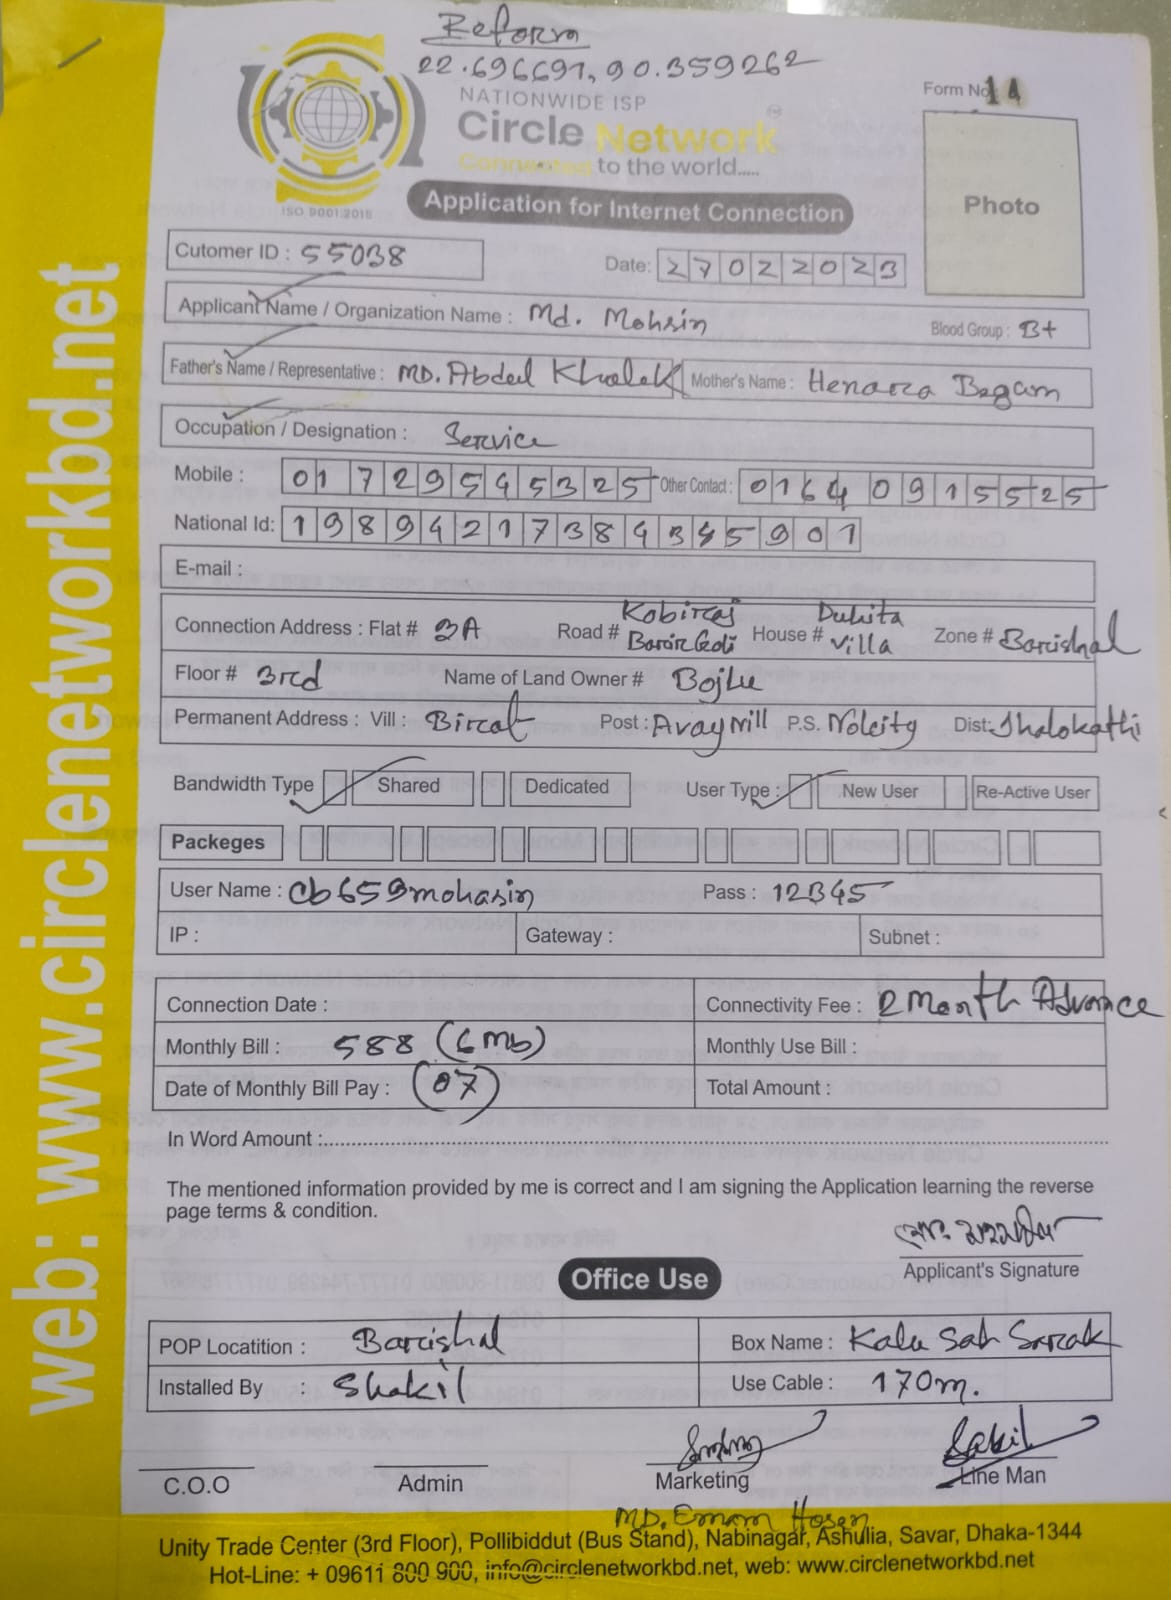 Reform
22.696691, 90.359262
NATIONWIDE ISP
Circle Network
Connected to the world.....
ISO 9001:2018
Form No 14
Photo
Application for Internet Connection
Cutomer ID : 55038
Date: 27022023
Applicant Name / Organization Name : Md. Mohsin Blood Group : B+
Father's Name / Representative : MD. Abdul Khalek Mother's Name : Henara Begam
Occupation / Designation : Service
Mobile : 01729545325 Other Contact : 01640915525
National Id: 19894217384345901
E-mail :
Connection Address : Flat # 3A Road # Kobiraj Barir Goli House # Duhita Villa Zone # Barishal
Floor # 3rd Name of Land Owner # Bojlu
Permanent Address : Vill : Bircat Post : Avaynill P.S. Nolcity Dist: Jhalokathi
Bandwidth Type Shared Dedicated User Type : New User Re-Active User
Packeges
User Name : cb659mohasin Pass : 12345
IP : Gateway : Subnet :
Connection Date : Connectivity Fee : 2 Month Advance
Monthly Bill : 588 (6 Mb) Monthly Use Bill :
Date of Monthly Bill Pay : (07) Total Amount :
In Word Amount :
The mentioned information provided by me is correct and I am signing the Application learning the reverse
page terms & condition.
মোঃ মহসীন
Applicant's Signature
Office Use
POP Locatition : Barishal Box Name : Kalu Sah Sarak
Installed By : Shakil Use Cable : 170m.
Sakil
C.O.O Admin Marketing Line Man
MD. Emam Hosen
Unity Trade Center (3rd Floor), Pollibiddut (Bus Stand), Nabinagar, Ashulia, Savar, Dhaka-1344
Hot-Line: + 09611 800 900, info@circlenetworkbd.net, web: www.circlenetworkbd.net
web: www.circlenetworkbd.net